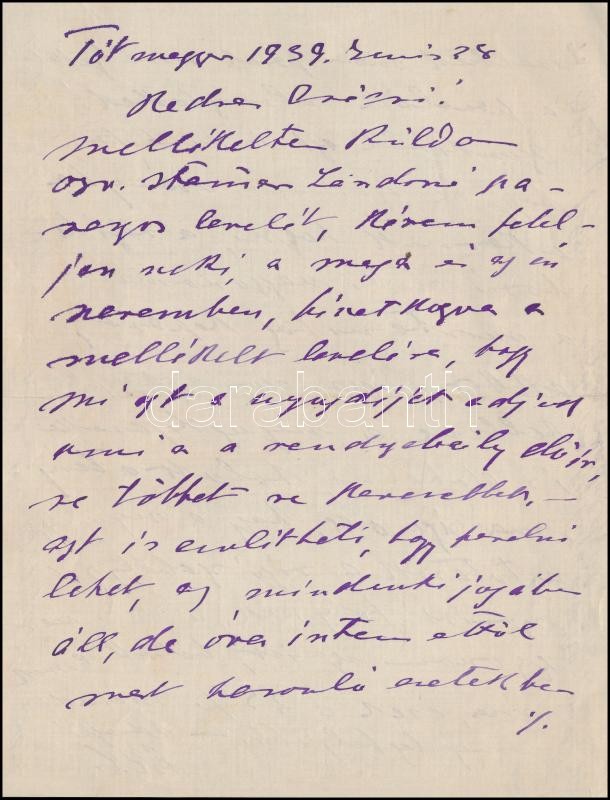 Tótmegyer 1939. Junis 28
Kedves
mellékelten Küldöm
özv. Stamer Sándorné pa-
naszos levelét, Kérem felel-
jen neki, a maga és az én
nevemben, hivatkozva a
mellékelt levelére, hogy
mi azt a nyugdíjat adjuk
ami a a rendszabály előír,
se többet se Kevesebbet, –
azt is említheti, hogy perelni
lehet, az mindenki jogában
áll, de óva intem ettől
mert hasonló esetekben
./.
darabanth